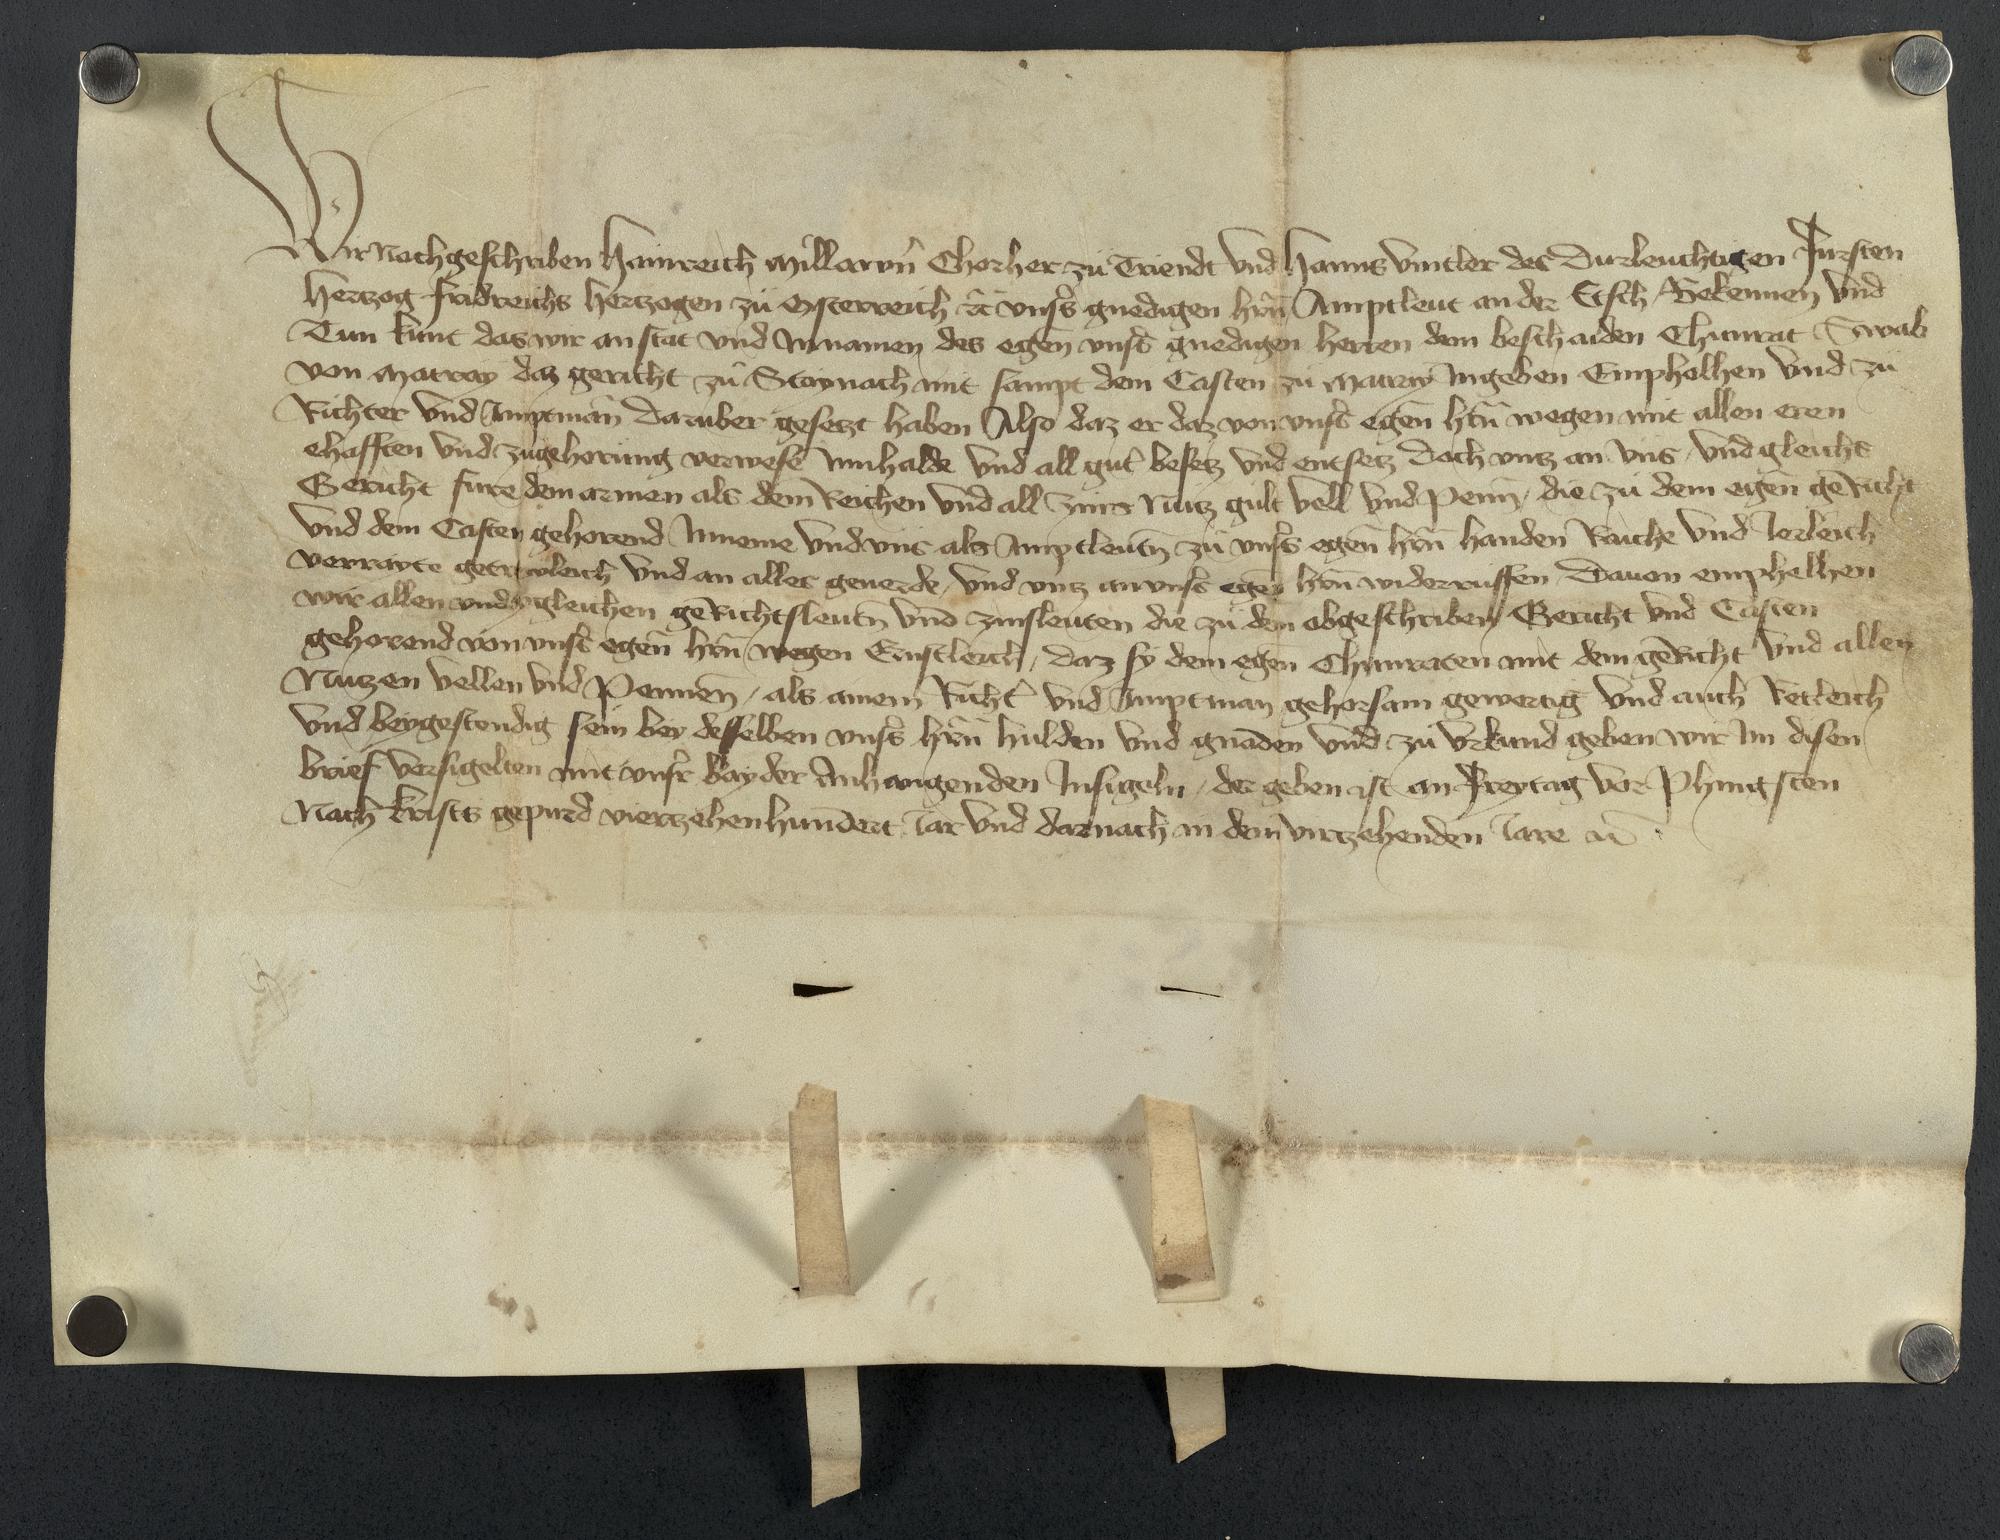 Wir Nachgeschriben Hainreich Millawn̄ Chorher zü Triendt vnd Hanns Vintler des Durleuchtigen Fürsten
Hertzog Fridreichs Hertzogen zü Osterreich ꝛc̄ vnsˢ gnedigen hr̄n Amptleut an der Etsch Bekennen vnd
Tun kunt das wir an stat vnd Innamen des egen̄ vnsˢ gnedigen herren dem beschaiden Chunrat Swab
von Matray daz gericht zü Staynach mit sampt dem Casten zü Matray Ingeben Emphelhen vnd zü
Richter vnd Amptman̄ Daruber gesetzt haben Also daz er daz von vnsˢ egen̄ hr̄n wegen mit allen eren
ehafften vnd zügehorung verwese Innhalde vnd all gutˢ besetz vnd entsetz doch vntz an vns vnd gleichs
Gericht füre dem armen als dem Reichen vnd all zins Nutz gült vell vnd Penn, die zü dem egen̄ geRicht
vnd dem Casten gehorend Inneme vnd vns als Amptleutn̄ zü vnsˢ egen̄ hr̄n handen Raiche vnd Jerleich
verrayte getrewleich vnd an alles geuerde, vnd vntz an vnsˢ egen̄ hr̄n widerrüffen Dauon emphelhen
wir allen vnd ygleichen geRichtsleutn̄ vnd zinsleuten die zü dem obgeschriben Gericht vnd Casten
gehorend von vnsˢ egen̄ hr̄n wegen Ernstleich, daz sy dem egen̄ Chunraten mit dem geRicht vnd allen
Nutzen vellen vnd Pennen, als ainem Richtˢ vnd Amptman gehorsam gewertig vnd auch Retleich
vnd beygestendig sein bey desselben vnsˢ hr̄n hulden vnd gnaden vnd zü vrkund geben wir Im disen
brief Versigelten mit vnsˢ bayder Anhangenden Insigeln, der geben ist an Freytag vor Phingsten
Nach Krists gepurd viertzehenhundert Jar vnd darnach in dem virtzehenden Jare